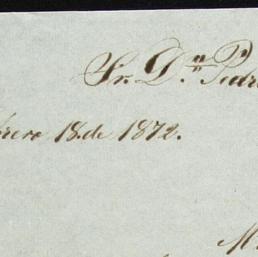 Sr. Dn. Pedr
brero 18. de 1872.
M.